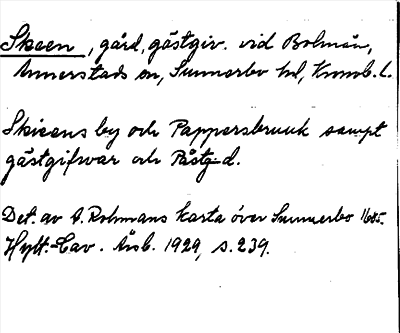 Skeen, gård, gästgiv. vid Bolmån,
Annerstads sn, Sunnerbo hd, Kronob. l.
Skieens by och Pappersbruuk sampt
gästgifwar och
Det. av A. Rohmans karta över Sunnerbo 1685.
Hylt.-Cav. Årsb. 1929, s. 239.